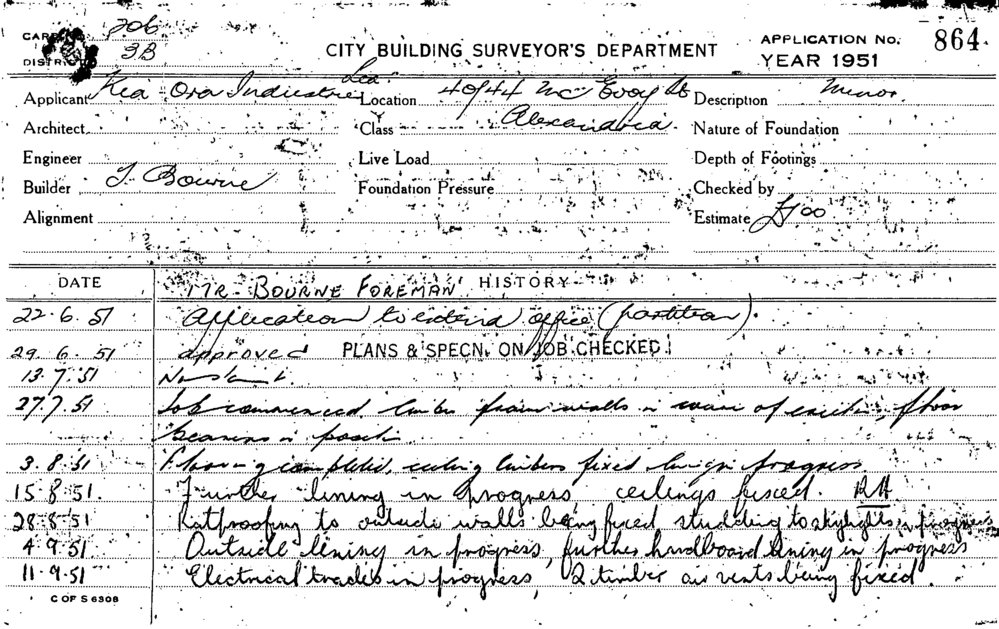 CARD No. 206
DISTRICT 3B
CITY BUILDING SURVEYOR'S DEPARTMENT
APPLICATION No. 864
YEAR 1951
Applicant Kia-Ora Industries Location 40/44 McEvoy St Description Minor
Architect Class Alexandria. Nature of Foundation
Engineer Live Load Depth of Footings
Builder J. Bourne Foundation Pressure Checked by
Alignment Estimate £100
DATE HISTORY
MR. BOURNE FOREMAN
22.6.51 Application to extend office (partition).
29.6.51 approved PLANS & SPECN. ON JOB CHECKED
13.7.51 No start.
27.7.51 Job commenced, timber frame walls in course of erection, floor
bearers in position
3.8.51 Flooring completed, ceiling timbers fixed lining in progress
15.8.51. Further lining in progress, ceilings fixed. RH
28.8.51 Ratproofing to outside walls being fixed, studding to skylights in progress
4.9.51 Outside lining in progress, further hardboard lining in progress
11.9.51 Electrical trades in progress, 2 timber air vents being fixed.
C OF S 6308